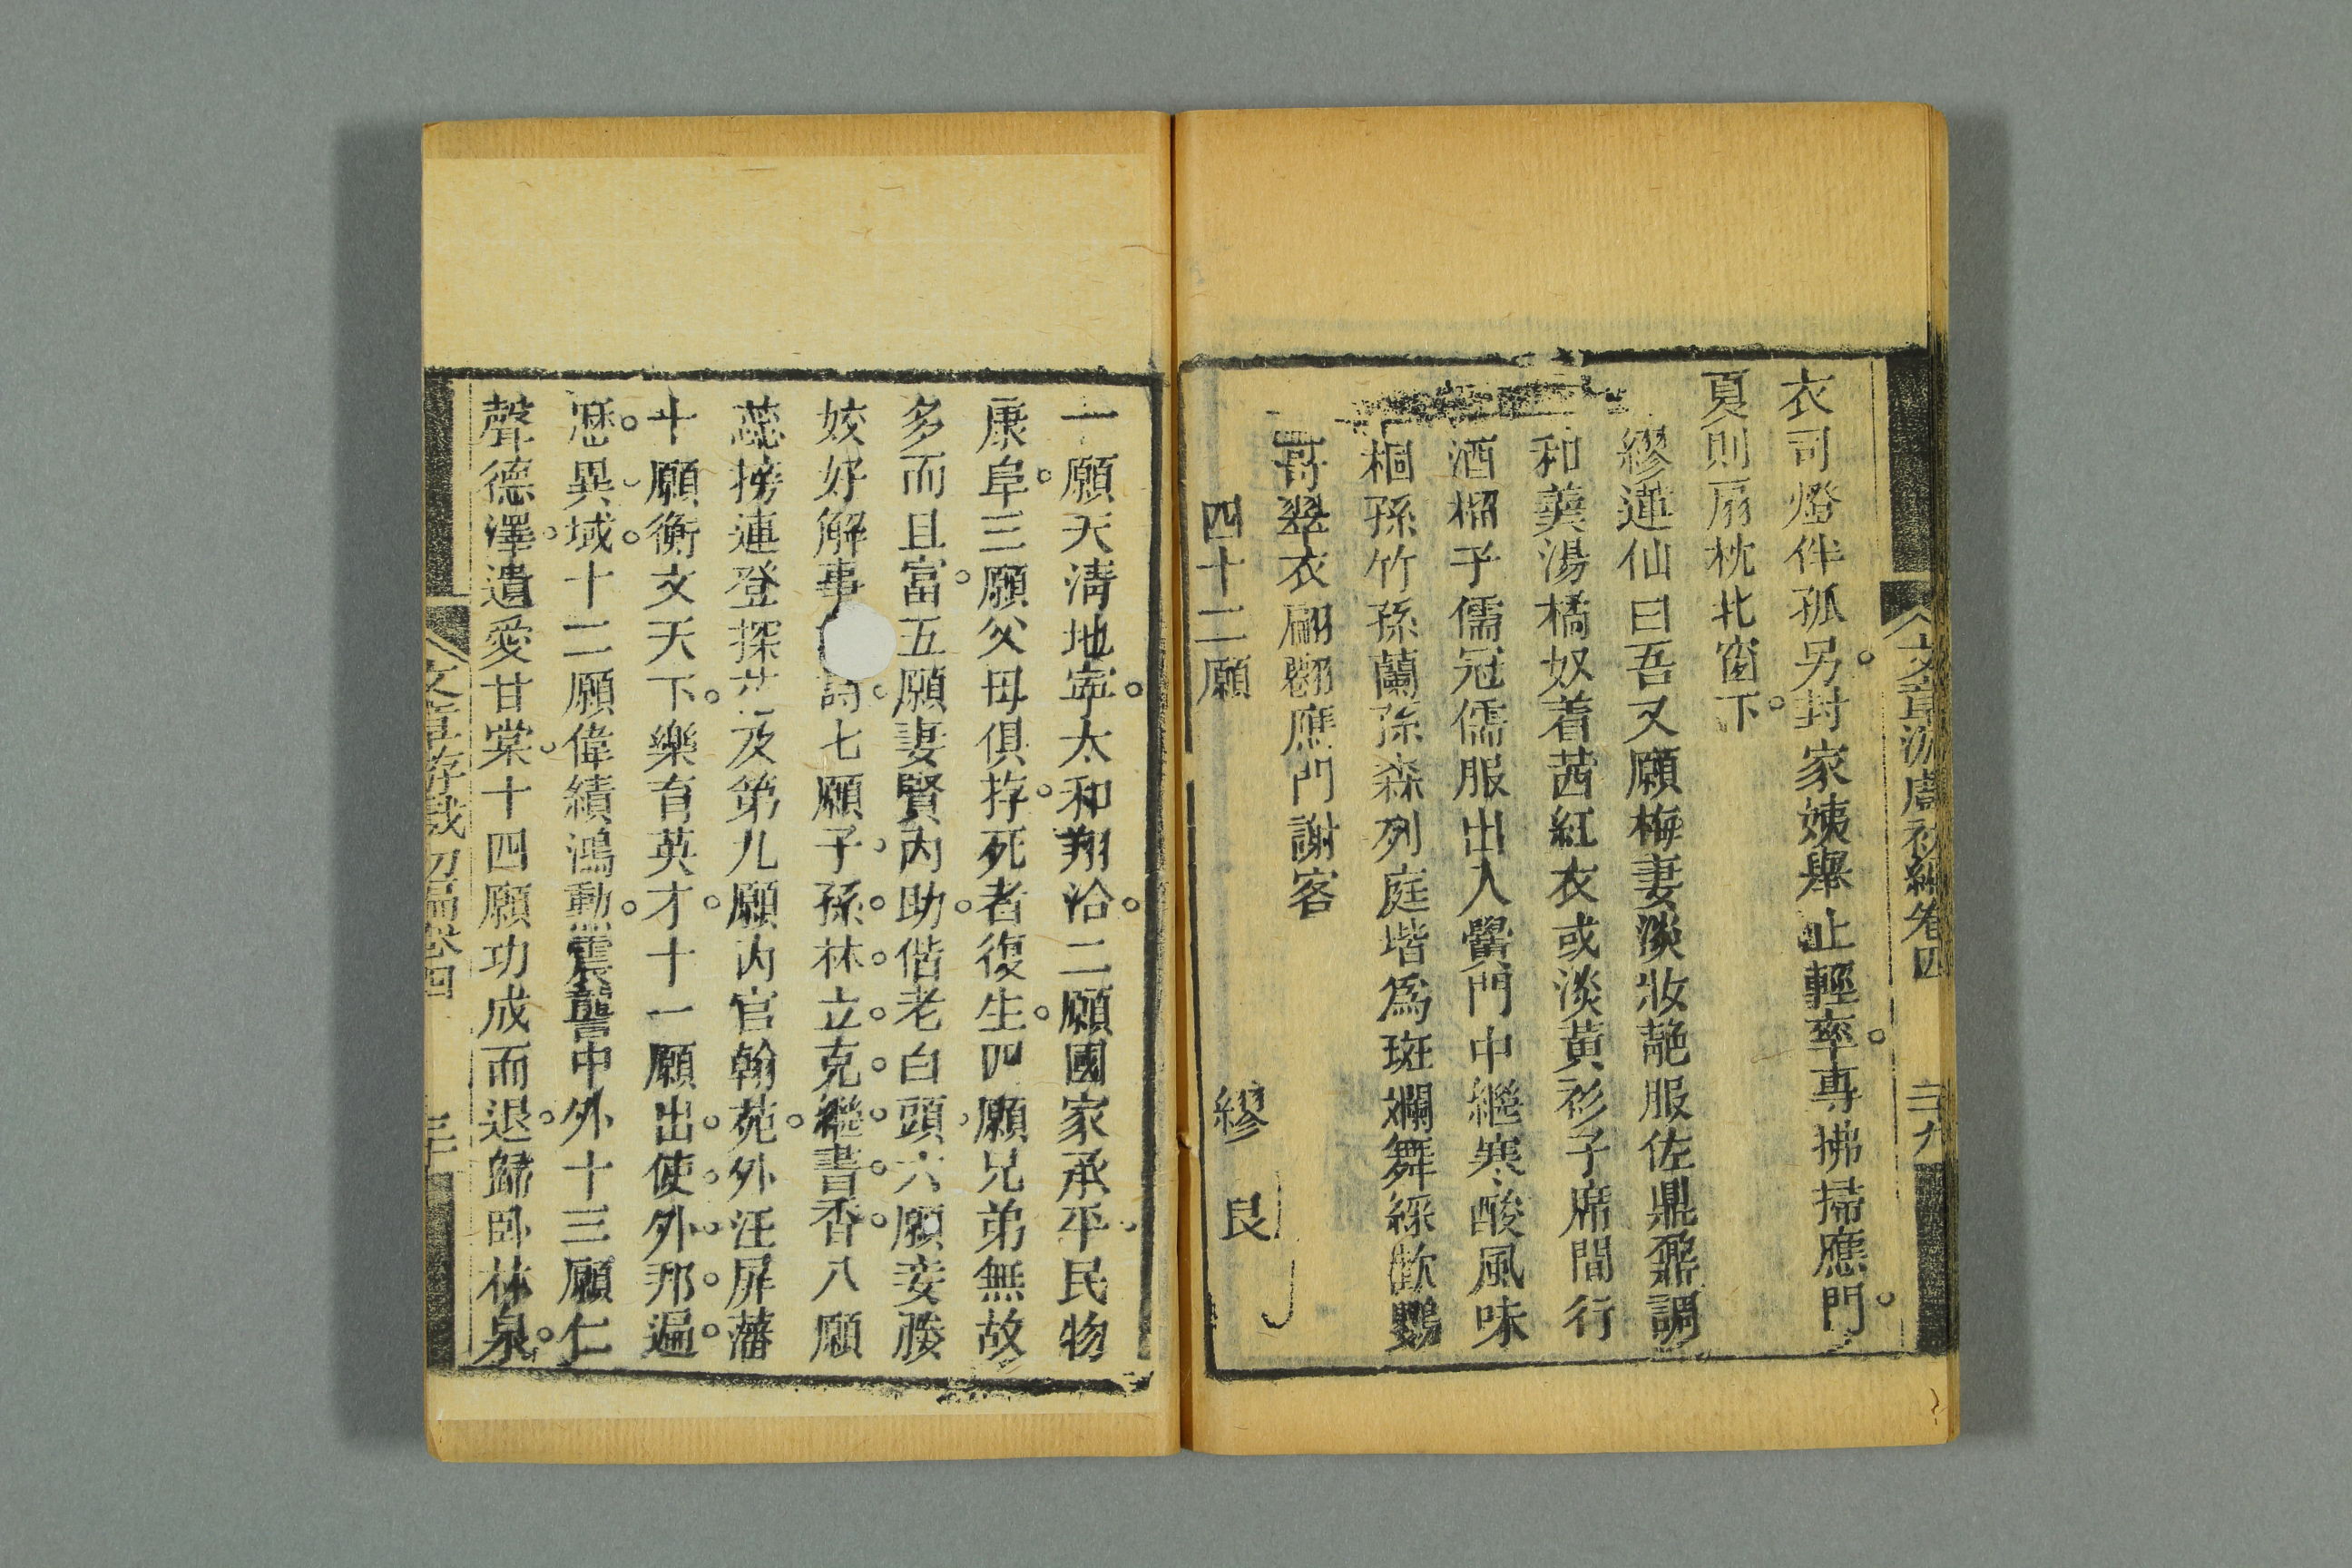 衣司燈伴孤另封家姨舉止輕率專拂掃應門
夏則扇枕北窗下
繆蓮仙曰吾又願梅妻淡妝艷服佐鼎鼐調
和羹湯橘奴着茜紅衣或淡黃衫子席間行
酒榴子儒冠儒服出入黌門中繼寒酸風味
桐孫竹孫蘭孫森列庭堦爲斑斕舞綵歡鸚
哥翠衣翩翩應門謝客
四十二願
繆艮
一願天清地寧太和翔洽二願國家承平民物
康阜三願父母俱存死者復生四願兄弟無故
多而且富五願妻賢內助偕老白頭六願妾媵
姣好解事詩七願子孫林立克繼書香八願
蕊榜連登探花及第九願內官翰苑外汪屏藩
十願衡文天下樂育英才十一願出使外邦遍
歷異域十二願偉績鴻勳震讋中外十三願仁
聲德澤遺愛甘棠十四願功成而退歸臥林泉
文章游戲初編卷四
三十
文章游戲初編卷四
二十九